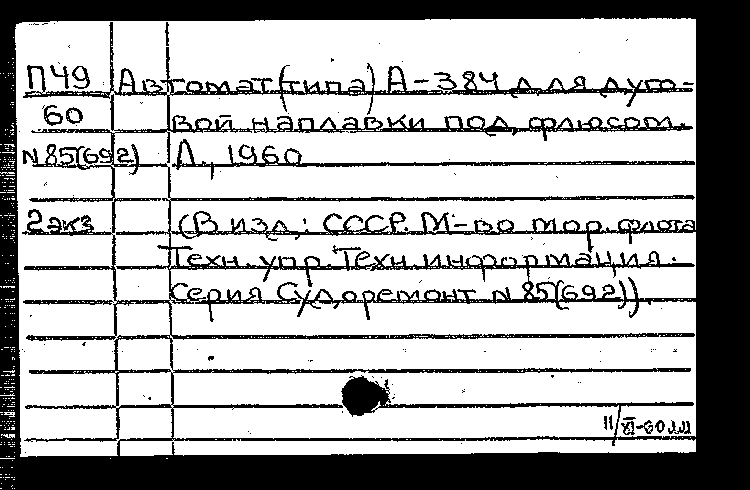 П49 Автомат (типа) А-384 для дуго-
60 вой наплавки под флюсом.
N85(692) Л., 1960
2 экз (В изд.: СССР. М-во мор. флота
Техн. упр. Техн. информация.
Серия Судоремонт N 85(692)).
11/XI-60